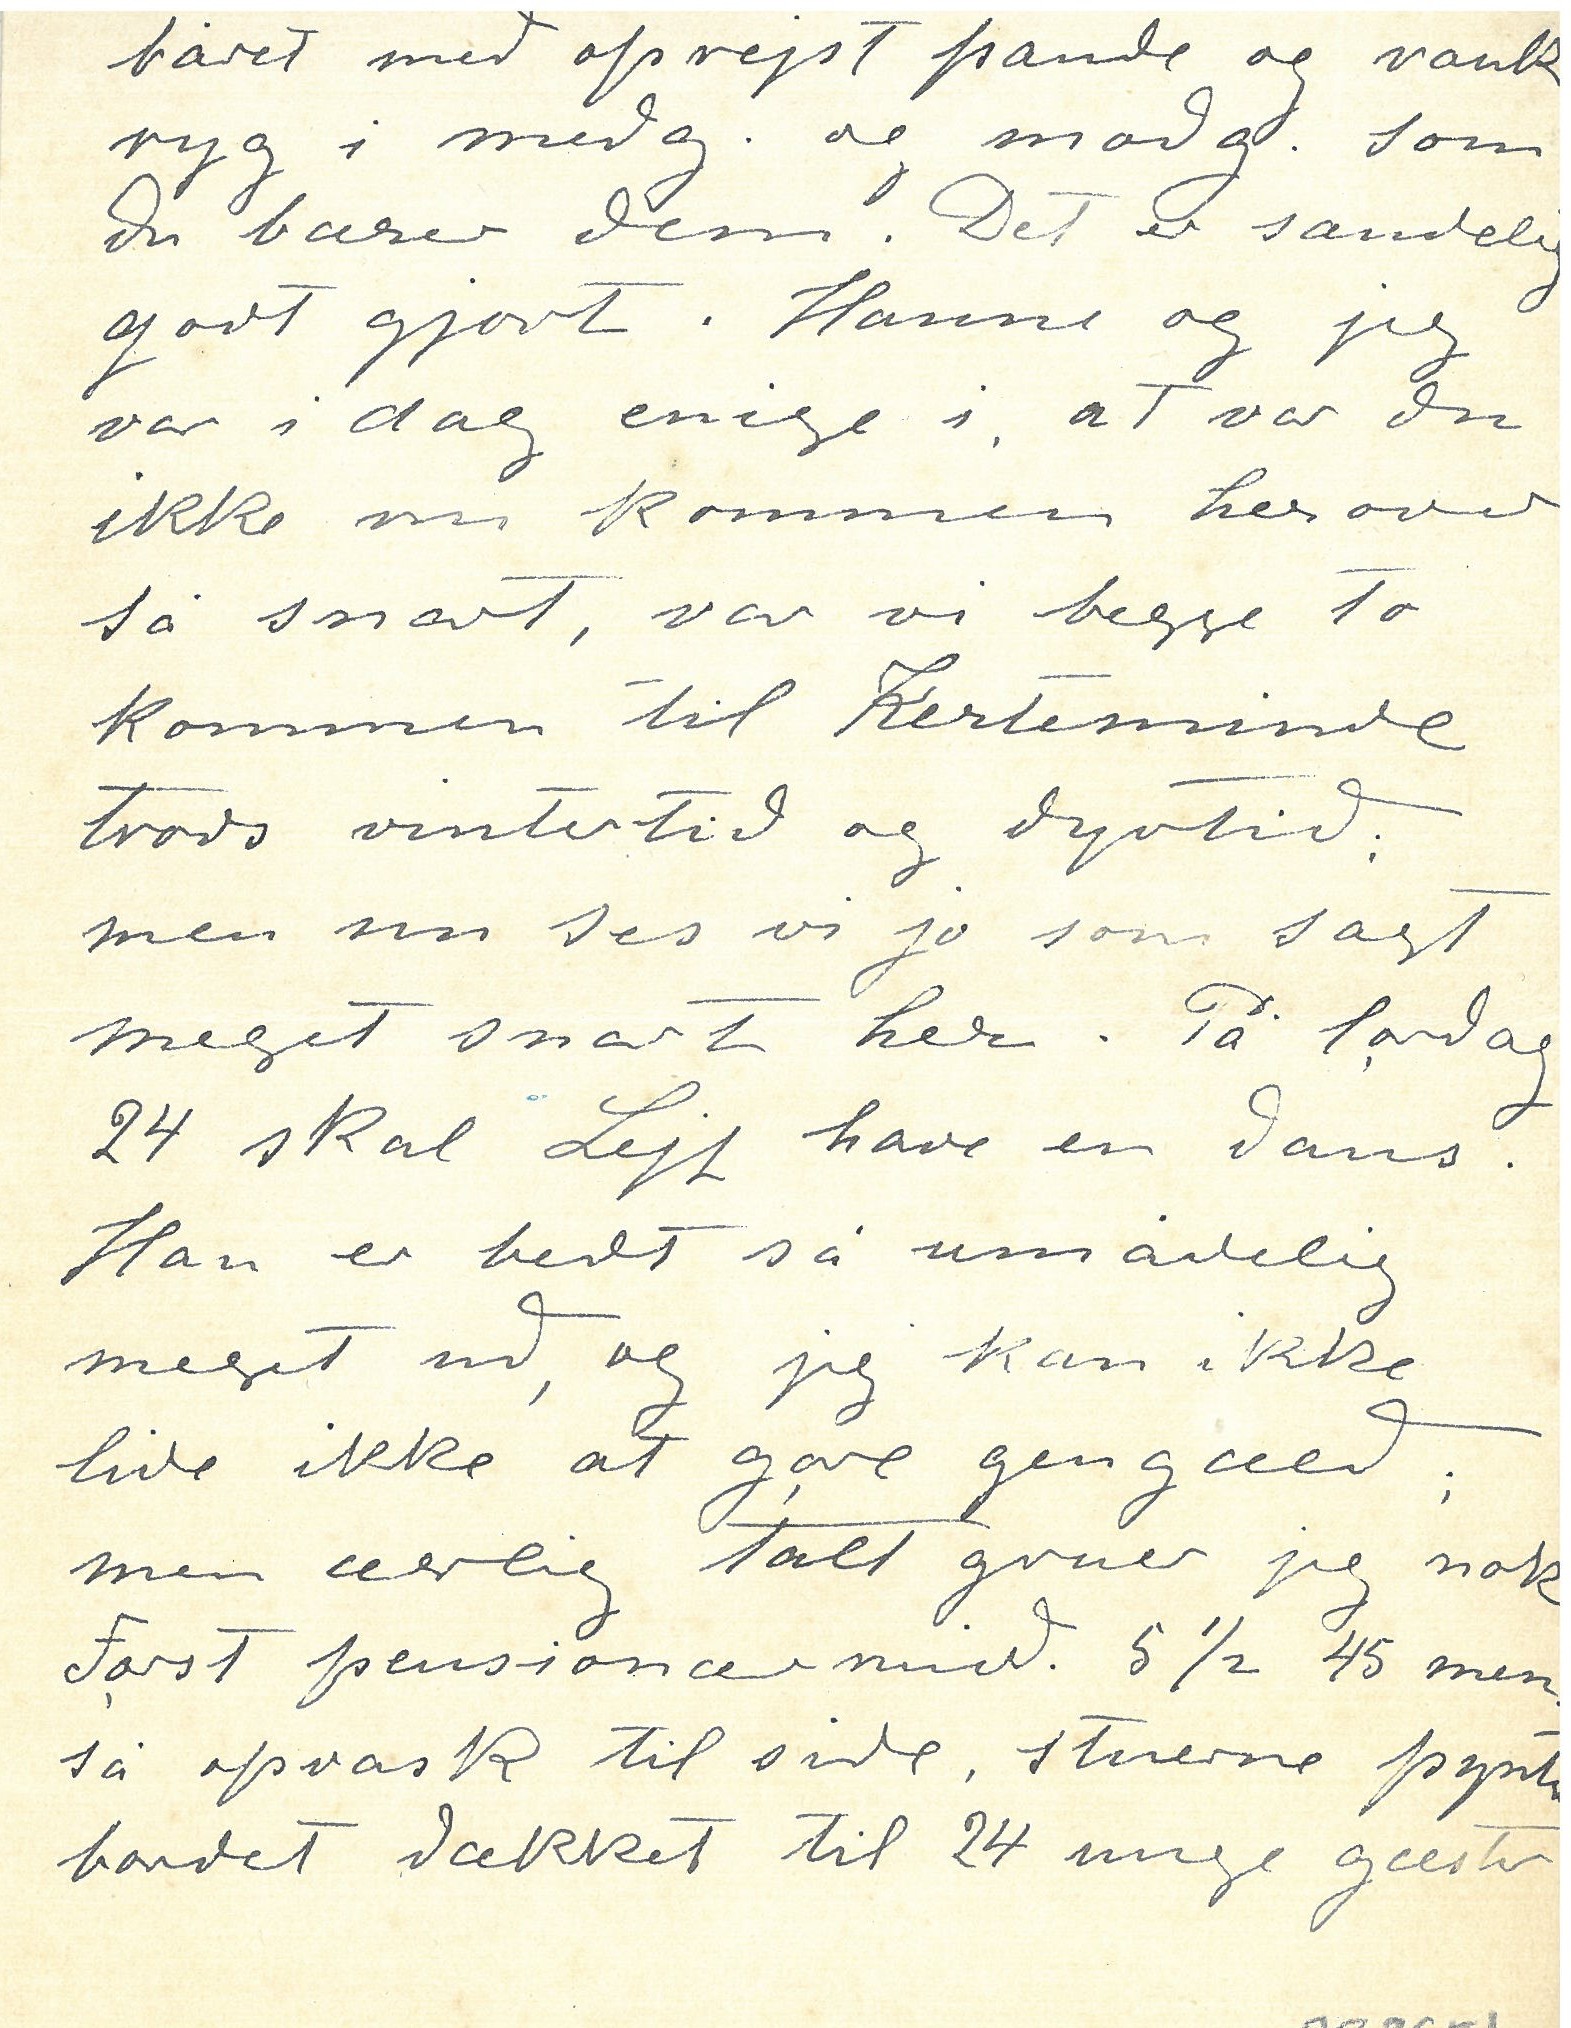 båret med oprejst pande og rank
ryg i medg. og modg. som
du bærer dem. Det er sandelig
godt gjort. Hanne og jeg
var i dag enige i, at var du
ikke nu kommen herover
så snart, var vi begge to
kommen til Kerteminde
trods vintertid og dyrtid;
men nu ses vi jo som sagt
meget snart her. På lørdag
24 skal Lejf have en dans.
Han er bedt så umådelig
meget ud, og jeg kan ikke
lide ikke at gøre gengæld;
men ærlig talt gruer jeg nok
Først pensionærmid. 5 1/2 45 men.
så opvask til side, stuerne pynte
bordet dækket til 24 unge gæster